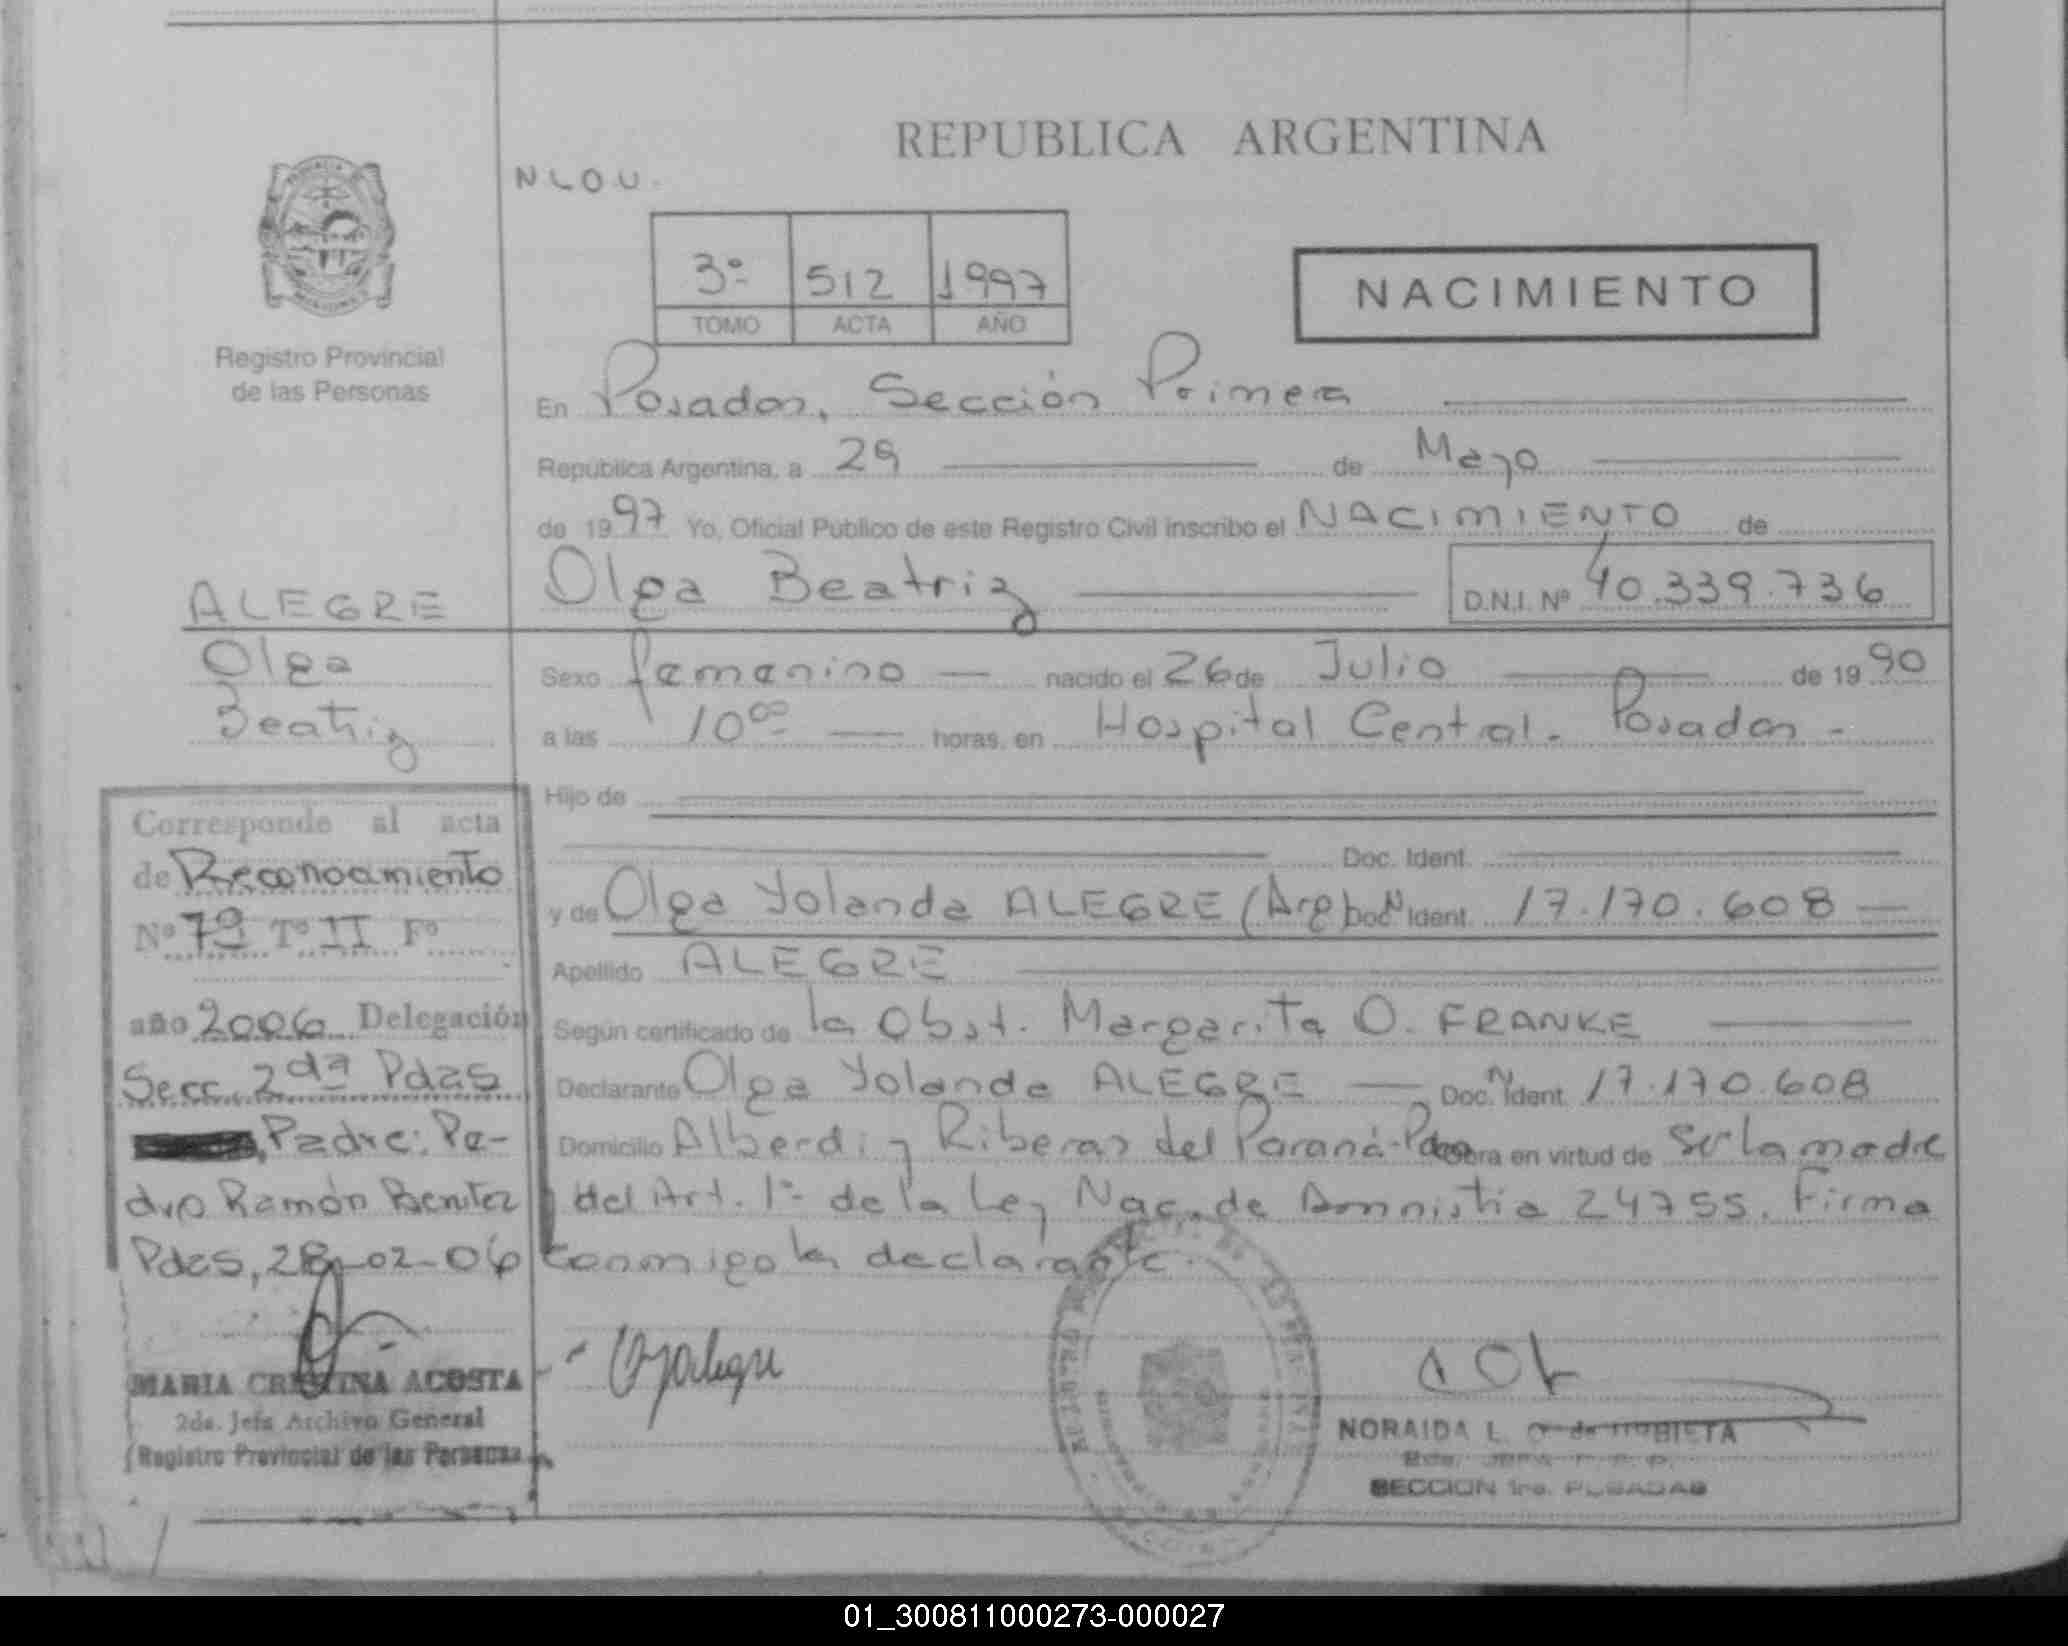 REPUBLICA ARGENTINA
N L O U.
3º 512 1997
TOMO ACTA AÑO
NACIMIENTO
Registro Provincial
de las Personas
En Posadas, Sección Primera
República Argentina, a 29 de Mayo
de 1997 Yo, Oficial Público de este Registro Civil inscribo el NACIMIENTO de
Olga Beatriz D.N.I. Nº 40.339.736
Sexo femenino nacido el 26 de Julio de 1990
a las 10⁰⁰ horas, en Hospital Central - Posadas -
Hijo de
Doc. Ident.
y de Olga Yolanda ALEGRE (Arg) Doc. N Ident. 17.170.608
Apellido ALEGRE
Según certificado de la Obst. Margarita O. FRANKE
Declarante Olga Yolanda ALEGRE Doc. N Ident. 17.170.608
Domicilio Alberdi y Riberas del Paraná - Pdas obra en virtud de ser la madre
del Art. 1º de la Ley Nac. de Amnistia 24755. Firma
conmigo la declarante.
ALEGRE
Olga
Beatriz
Corresponde al acta
de Reconocimiento
Nº 79 Tº II Fº
año 2006 Delegación
Secc. 2da Pdas
Padre: Pe-
dro Ramón Benitez
Pdas, 28-02-06
MARIA CRISTINA ACOSTA
2da. Jefa Archivo General
Registro Provincial de las Personas
NORAIDA L. de
SECCION 1ra. POSADAS
01_300811000273-000027